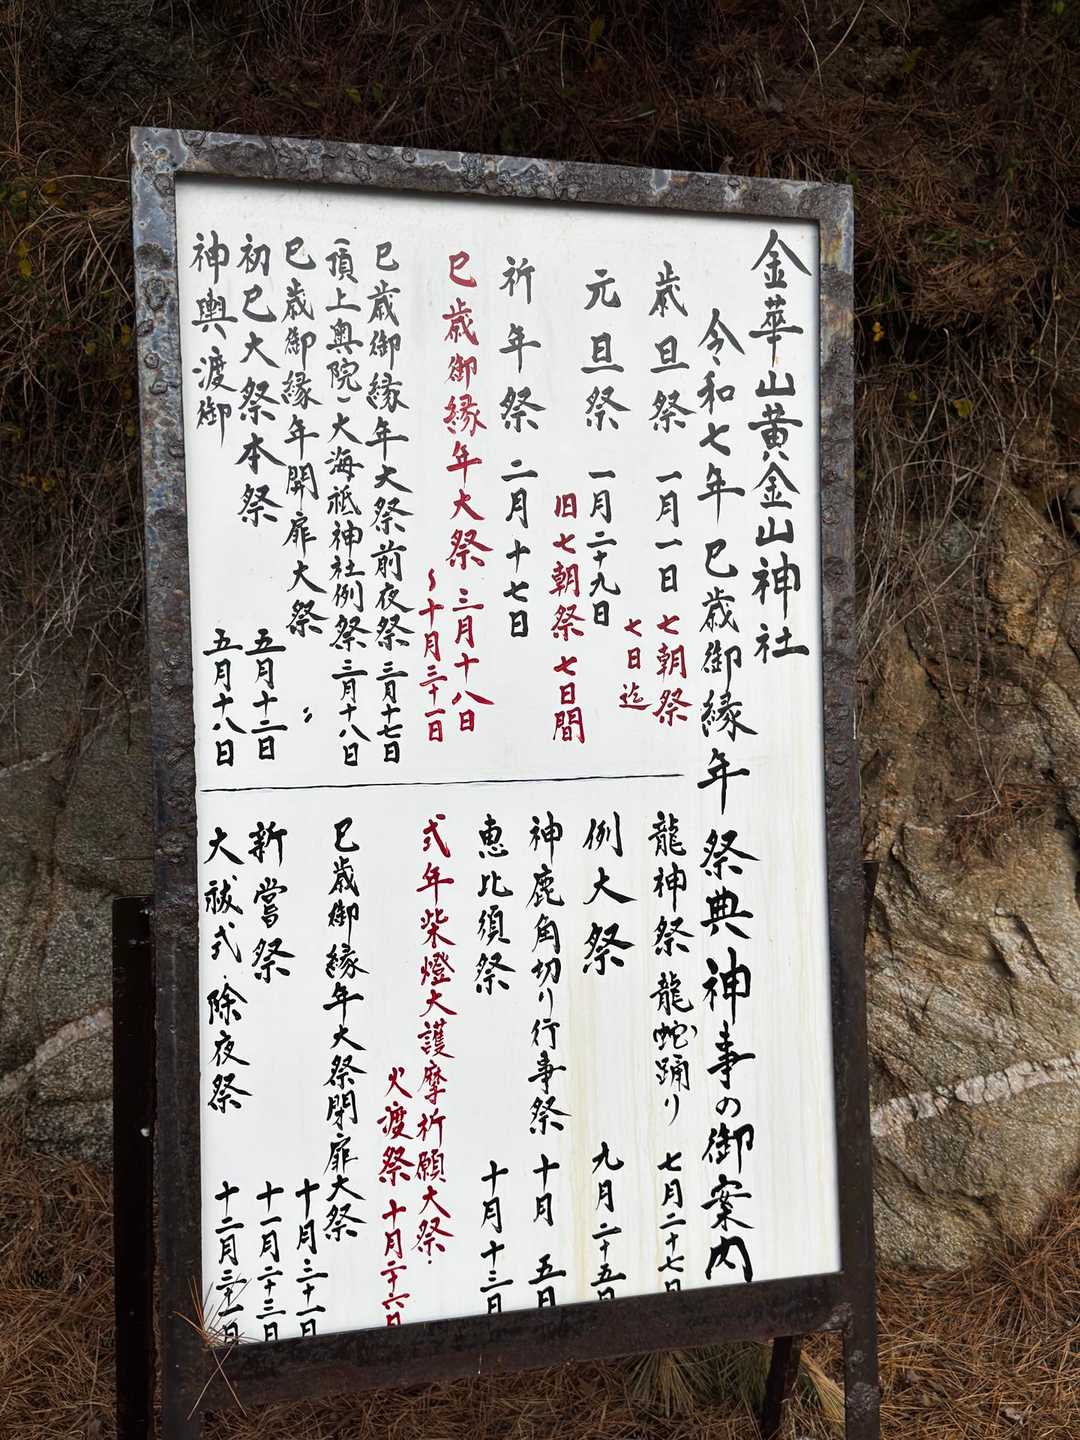 金華山黄金山神社
令和七年 巳歳御縁年 祭典神事の御案内
歳旦祭 一月一日 七朝祭
七日迄
元旦祭 一月二十九日
旧七朝祭 七日間
祈年祭 二月十七日
巳歳御縁年大祭 三月十八日
～十月三十一日
巳歳御縁年大祭前夜祭 三月十七日
(頂上奥院)大海祇神社例祭 三月十八日
巳歳御縁年開扉大祭 〃
初巳大祭本祭 五月十二日
神輿渡御 五月十八日
龍神祭 龍蛇踊り 七月二十七日
例大祭 九月二十五日
神鹿角切り行事祭 十月 五日
恵比須祭 十月十三日
式年柴燈大護摩祈願大祭・
火渡祭 十月二十六日
巳歳御縁年大祭閉扉大祭
十月三十一日
新嘗祭 十一月二十三日
大祓式・除夜祭 十二月三十一日